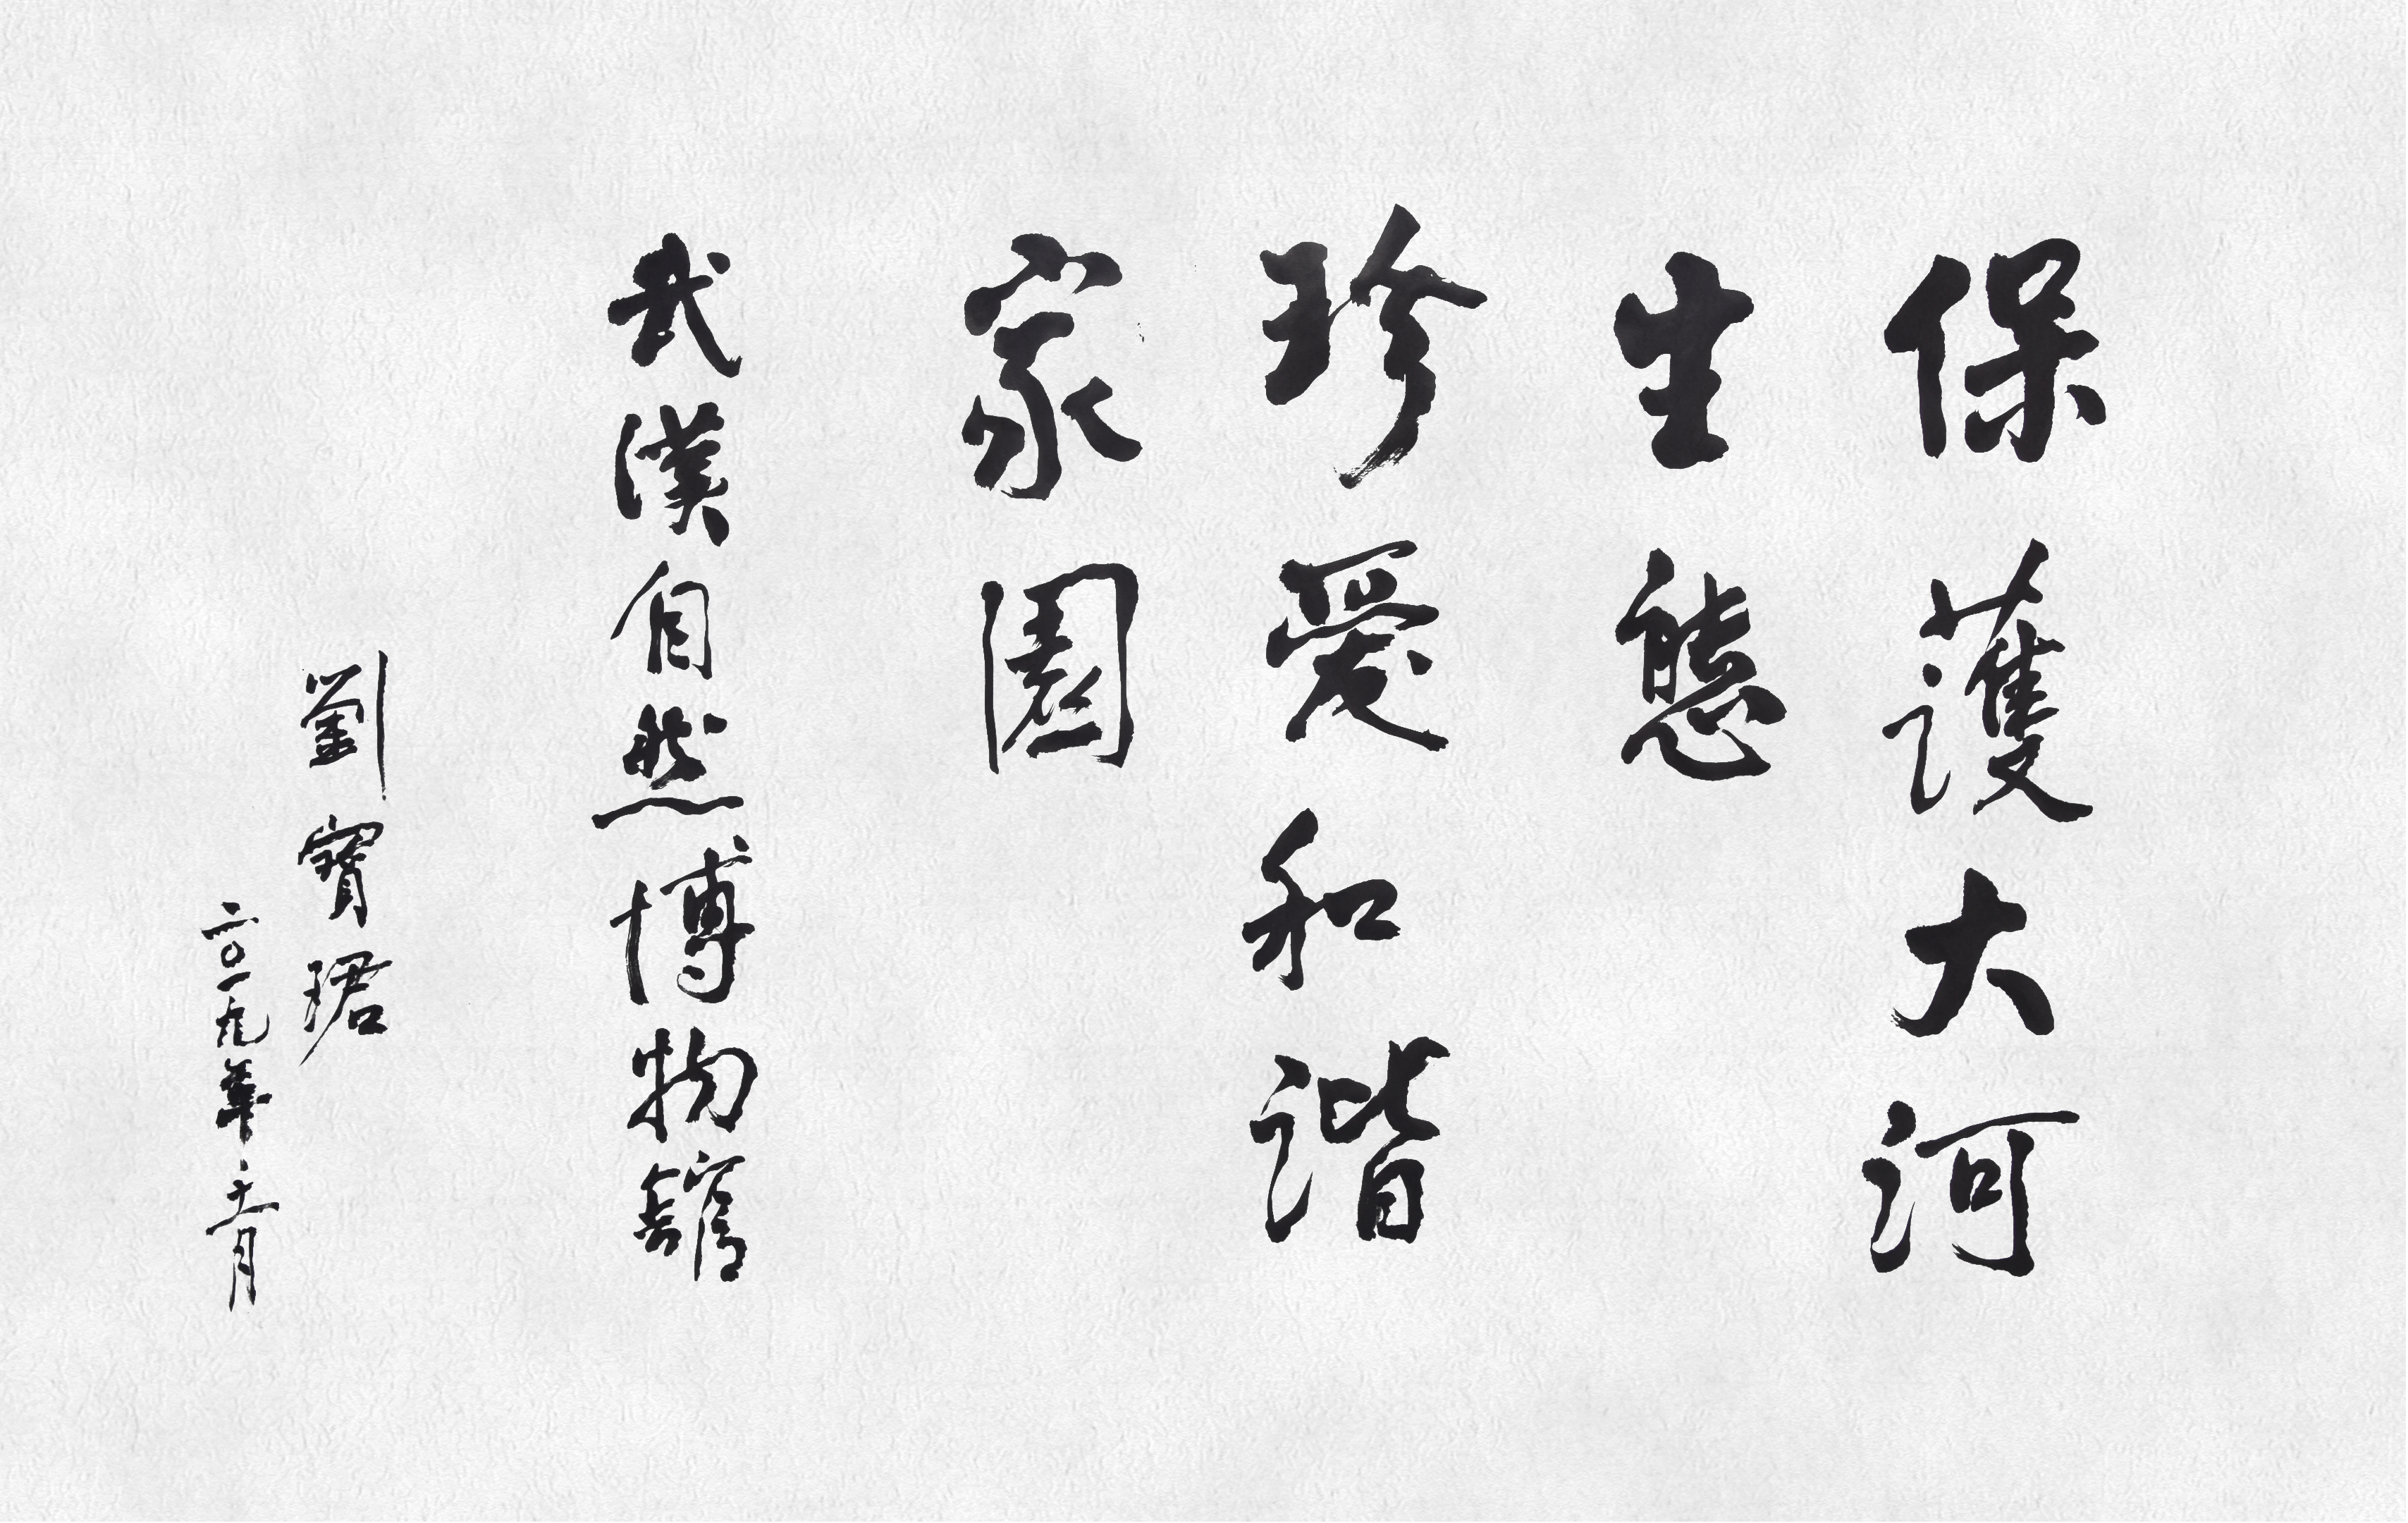 保護大河
生態
珍愛和諧
家園
武漢自然博物館
劉寳珺
二〇一九年十一月